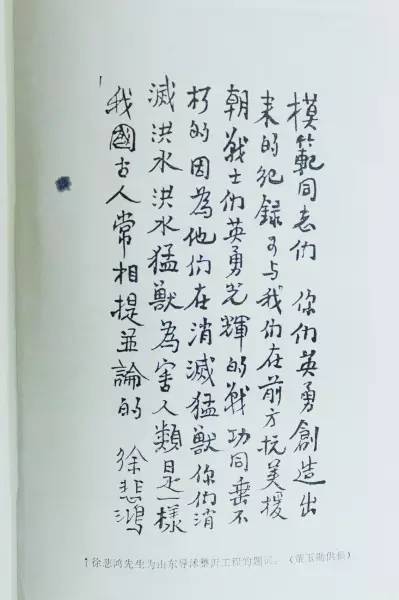 模範同志们 你们英勇創造出
来的纪録可与我们在前方抗美援
朝戰士们英勇光輝的戰功同垂不
朽的因為他们在消滅猛獸你们消
滅洪水洪水猛獸為害人類是一樣
我國古人常相提並論的 徐悲鴻
↑徐悲鸿先生为山东导沭整沂工程的题词。（董玉勋供稿）